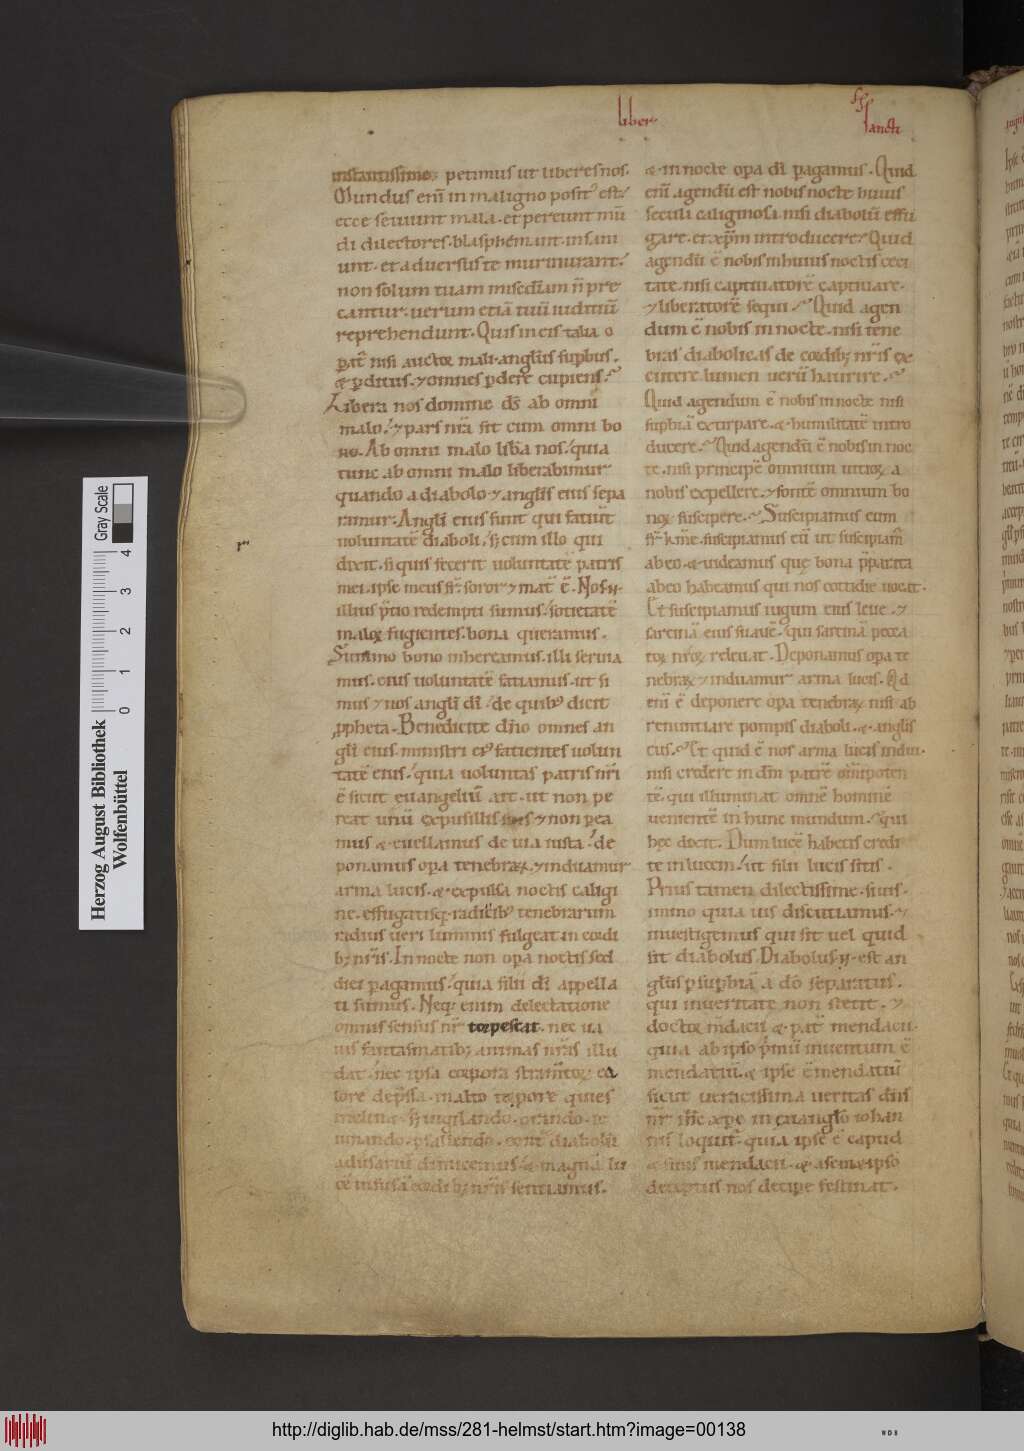 liber
sci
sancti
instantissime petimus ut liberes nos.
Mundus eni͞ in maligno posit᷒ est.
ecce seuiunt mala. et pereunt mu͞
di dilectores. blasphemant. insani
unt. et aduersus te murmurant.
non solum tuam mise͞diam n͞ pre
cantur. uerum etia͞ tuu͞ iuditiu͞
reprehendunt. Quis in eis talia o
ꝑat͞ nisi auctor mali. angl͞us suꝑbus.
& ꝑditus. ⁊ omnes ꝑdere cupiens.
Libera nos domine d͞s ab omni
malo. ⁊ pars nr͞a sit cum omni bo
no. Ab omni malo lib͞a nos. quia
tunc ab omni malo liberabimur
quando a diabolo ⁊ angl͞is eius sepa
ramur. Angl͞i eius sunt qui fatiu͞t
uoluntate͞ diaboli. s; cum illo qui
dixit. si quis fecerit uoluntate͞ patris
mei. ipse meus fr͞. soror ⁊ mat͞ e͞. Nos
illius p͞tio redempti sumus. sotietate͞
maloꝝ fugientes. bona queramus.
Summo bono inhereamus. illi seruia
mus. eius uoluntate͞ fatiamus. ut si
mus ⁊ nos angl͞i d͞i. de quib᷒ dicit
ꝓpheta. Benedicite d͞no omnes an
gl͞i eius. ministri ei᷒ fatientes uolun
tate͞ eius. quia uoluntas patris nr͞i
e͞ sicut euangeliu͞ ait. ut non pe
reat unu͞ ex pusillis istis ⁊ non ꝑea
mus & euellamus de uia iusta. de
ponamus oꝑa tenebraꝝ. ⁊ induamur
arma lucis. & expulsa noctis caligi
ne. effugatisq; radicib᷒ tenebrarum
radius ueri luminis fulgeat in cordi
b; nr͞is. In nocte non oꝑa noctis sed
diei ꝑagamus. quia filii d͞i appella
ti sumus. Neq; enim delectatione
omnis sensus nr͞ torpescat. nec ua
nis fantasmatib; animas nr͞as illu
dat. nec ipsa corpora stramtoꝝ ca
lore dep͞ssa. multo torpore quies
s; uigilando. orando. ie
iunando. psallendo. cont͞ diabolu͞
adu͞sariu͞ dimicemus. & magna͞ lu
ce͞ infusa͞ cordib; nr͞is sentiamus.
& in nocte oꝑa d͞i ꝑagamus. Quid
eni͞ agendu͞ est nobis nocte huius
seculi caliginosa. nisi diabolu͞ effu
gare. et xp͞m introducere. Quid
agendu͞ e͞ nobis in huius noctis ceci
tate. nisi captiuatore͞ captiuare.
⁊ liberatore͞ sequi. Quid agen
dum e͞ nobis in nocte. nisi tene
bras diabolicas de cordib; nr͞is ex
cutere. lumen ueru͞ haurire.
Quid agendum e͞ nobis in nocte nisi
suꝑbia͞ extirpare. & humilitate͞ intro
ducere. Quid agendu͞ e͞ nobis in noc
te. nisi principe͞ omnium uitioꝝ a
nobis expellere. ⁊ fonte͞ omnium bo
noꝝ suscipere. Suscipiamus eum
fr͞s k͞me. suscipiamus eu͞ ut suscipiam͞
ab eo. & uideamus quę bona p͞parata
ab eo habeamus qui nos cottidie uocat.
Et suscipiamus iugum eius leue. ⁊
sarcina͞ eius suaue͞. qui sarcina͞ pecca
toꝝ nr͞oꝝ releuat. Deponamus oꝑa te
nebraꝝ ⁊ induamur arma lucis. Qd
eni͞ e͞ deponere oꝑa tenebraꝝ nisi ab
renuntiare pompis diaboli. & anglis
eius. Et quid e͞ nos arma lucis indui.
nisi credere in d͞m patre͞ om͞ipoten
te͞. qui illuminat omne͞ homine͞
ueniente͞ in hunc mundum. qui
hęc docet. Dum luce͞ habetis credi
te in lucem. ut filii lucis sitis.
Prius tamen dilectissime. si uis.
immo quia uis discutiamus. ⁊
inuestigemus qui sit uel quid
sit diabolus. Diabolus est an
gl͞us ꝑ suꝑbia͞ a d͞o separatus.
qui in ueritate non stetit. ⁊
doctor m͞dacii & pat͞ mendacii.
quia ab ipso p͞mu͞ inuentum e͞
mendatiu͞. & ipse e͞ mendatiu͞
sicut ueracissima ueritas d͞ns
nr͞ ih͞c xpc in euangl͞o iohan
nis loquit͞. quia ipse e͞ caput
& finis mendacii. & a semetipso
deceptus nos decipe festinat.
Herzog August Bibliothek
Wolfenbüttel
Gray Scale
0 1 2 3 4
http://diglib.hab.de/mss/281-helmst/start.htm?image=00138